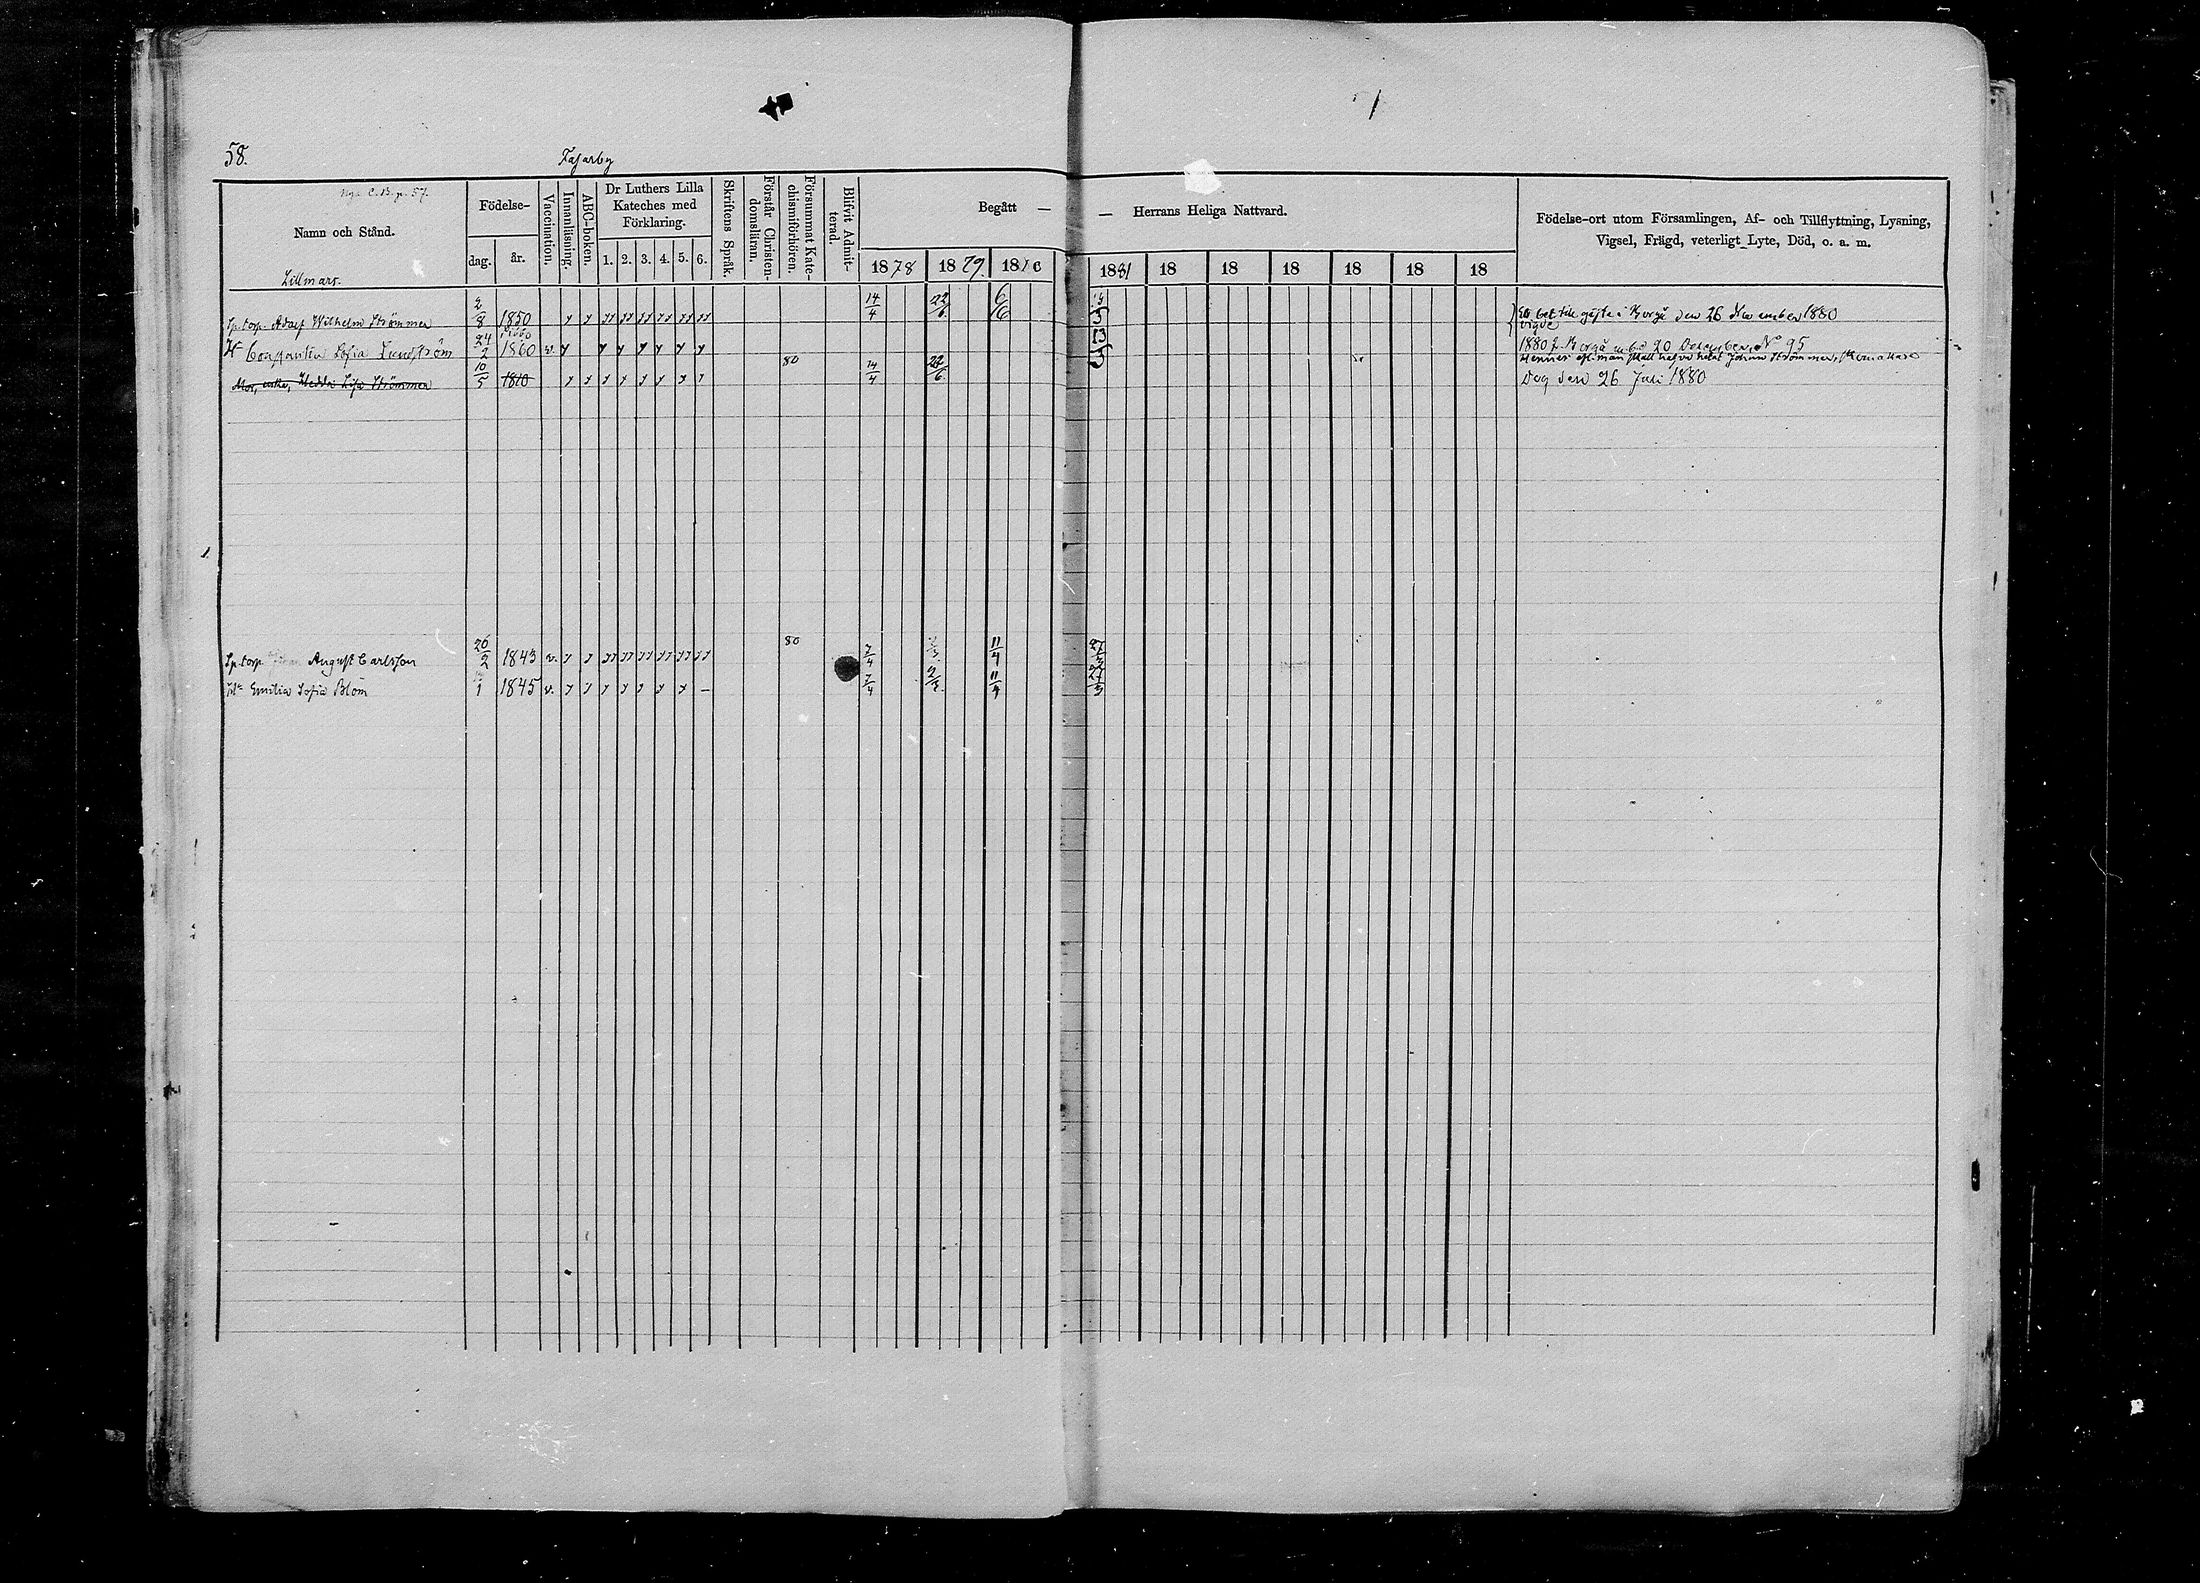 58.
Fasarby
Nya C. B. p. 57.
Namn och Stånd.
Födelse-
dag.
år.
Vaccination.
Innanläsning.
ABC-boken.
Dr Luthers Lilla
Kateches med
Förklaring.
1. 2. 3. 4. 5. 6.
Skriftens Språk.
Förstår Christen-
domsläran.
Försummat Kate-
chismiförhören.
Blifvit Admit-
terad.
Begått —
— Herrans Heliga Nattvard.
1878 1879. 18 1881 18 18 18 18 18 18
Födelse-ort utom Församlingen, Af- och Tillflyttning, Lysning,
Vigsel, Frägd, veterligt Lyte, Död, o. a. m.
Lillmars.
Sp. torp. Adolf Wilhelm Strömmer 2/8 1850 y y yy yy yy yy yy yy 14/4 22/6 6/6 den 26 November 1880
vigde
H Constantia Sofia Lundström 24/2 1860 v. y y y y y y y 1880 f. Borgå 20 December, No 95
Mor, enka, Hedda Lisa Strömmer 10/5 1810 y y y y y y y y 80 14/4 22/6 Dog den 26 Juli 1880
Sp. torp. August Carlsson 26/2 1843 v. y y yy yy yy yy yy yy 80 7/4 11/4 27/3
Emilia Sofia Blom 1 1845 v. y y y y y y y – 7/4 2/3 11/4 27/3